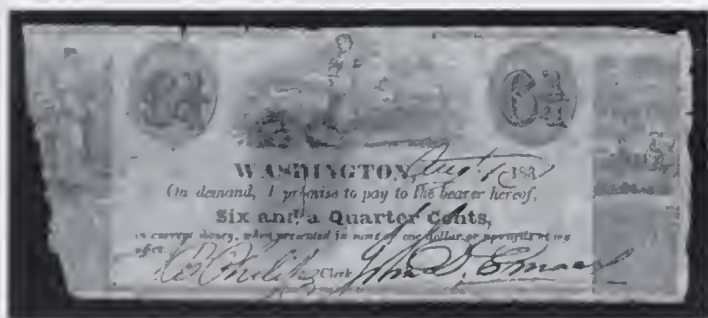 6¼ 6¼
WASHINGTON, 183
On demand, I promise to pay to the bearer hereof,
Six and a Quarter Cents,
in current money, when presented in sums of one dollar or upwards at my
office.
Clerk John D.